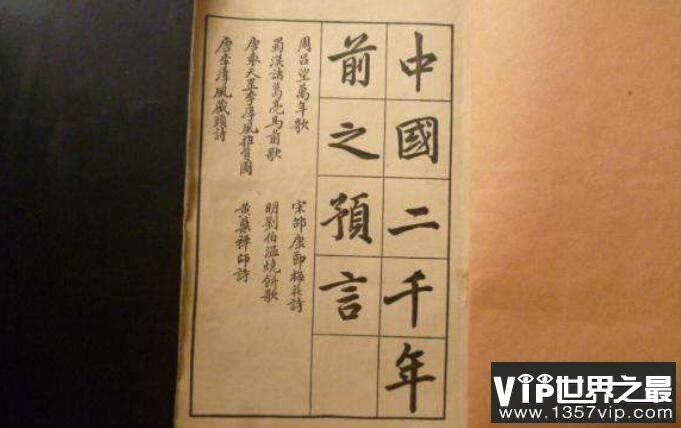 中國二千年
前之預言
周呂望萬年歌
蜀漢諸葛亮馬前歌
唐袁天罡李淳風推背圖
唐李淳風藏頭詩
宋邵康節梅花詩
明劉伯溫燒餅歌
黃蘗禪師詩
VIP世界之最
www.1357vip.com